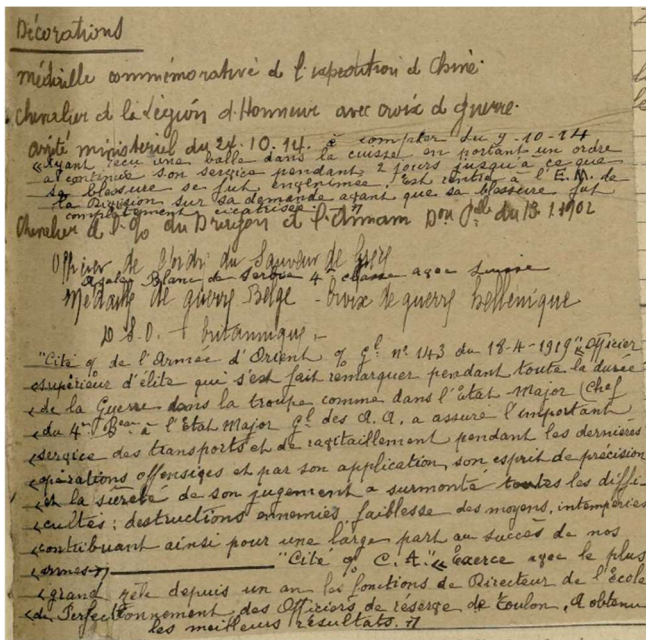 Décorations
médaille commémorative de l'expédition de Chine.
Chevalier de la Légion d'Honneur avec croix de guerre.
arrêté ministériel du 24.10.14. à compter du 9-10-14
« Ayant reçu une balle dans la cuisse en portant un ordre
a continué son service pendant 2 jours jusqu'à ce que
sa blessure se fut envenimée. Est rentré à l'E.M. de
la Division sur sa demande avant que sa blessure fut
complètement cicatrisée. »
Chevalier de l'% du Dragon de l'Annam Don du 13.1.1902
Officier de l'ordre du Sauveur de Grèce
Aigle Blanc de Serbie 4e classe avec
Médaille de guerre Belge - Croix de guerre hellénique
D.S.O. - britannique.-
"Cité % de l'Armée d'Orient % gl n° 143 du 18-4-1919" « Officier
« supérieur d'élite qui s'est fait remarquer pendant toute la durée
« de la Guerre dans la troupe comme dans l'Etat-Major (Chef
« du 4me Beau à l'Etat Major gl des A.A. a assuré l'important
« service des transports et de ravitaillement pendant les dernières
« opérations offensives et par son application, son esprit de précision
« et la sureté de son jugement a surmonté toutes les diffi-
« cultés : destructions ennemies faiblesse des moyens, intempéries
« contribuant ainsi pour une large part au succès de nos
« armes » "Cité % C.A." « Exerce avec le plus
« grand zèle depuis un an les fonctions de Directeur de l'école
« de Perfectionnement des Officiers de réserve de Toulon, A obtenu
les meilleurs résultats. »